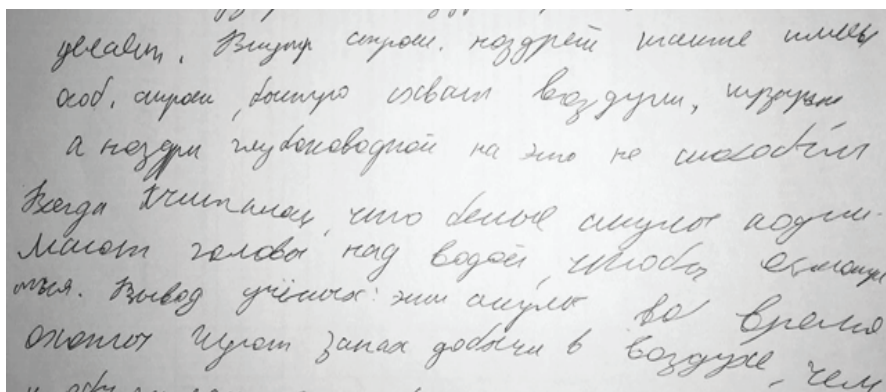 увеает. Внутр строен. ноздрей также имеет
особ. строен, быстро схват воздуш. пузырьки
а ноздри глубоководной на это не способны
Всегда считалось, что белые акулы подни-
мают головы над водой, чтобы осмотре
ться. Вывод учёных: эти акулы во время
охоты чуют запах добычи в воздухе, чем